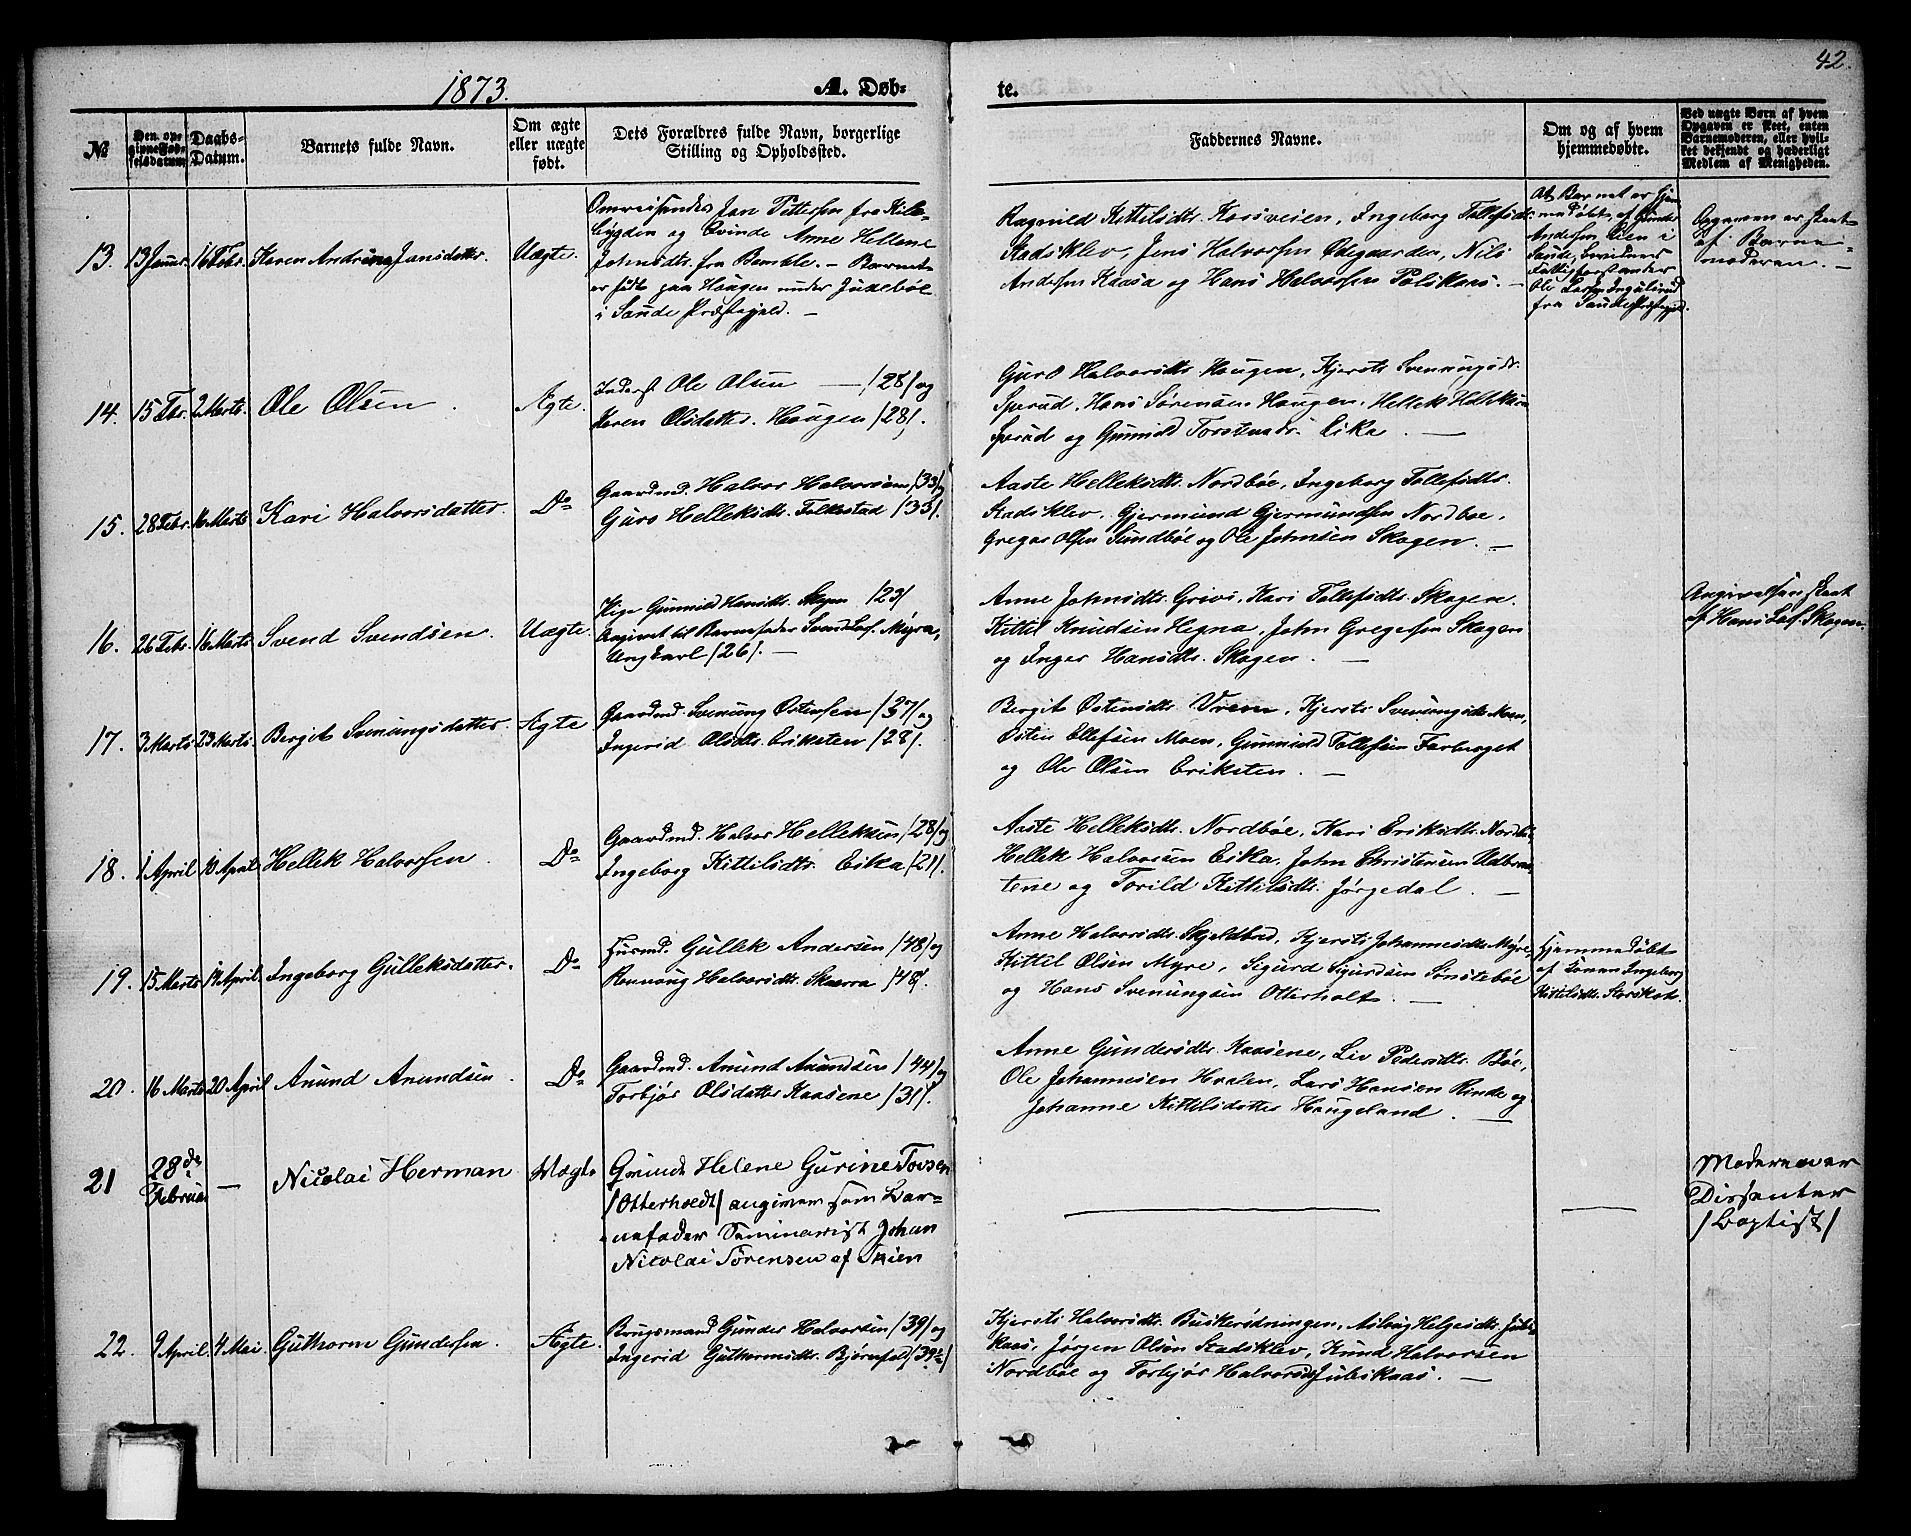 42.
1873. A. Døb- te.
№
Den opgivne Fødselsdatum.
Daabs-Datum.
Barnets fulde Navn.
Om ægte eller uægte født.
Dets Forældres fulde Navn, borgerlige Stilling og Opholdssted.
Faddernes Navne.
Om og af hvem hjemmedøbte.
Ved uægte Børn af hvem Opgaven er skeet, enten Barnemoderen, eller hvilket bekjendt og hæderligt Medlem af Menigheden.
13. 13 Januar 16 Febr. Karen Andrine Jansdatter. Uægte.
Omreisende Jan Pettersen fra Kile-
bygden og Qvinde Anne Hellene
Johnsdtr. fra Bamble. — Barnet
er født paa Haugen under Juveboe
i Saude Præstegjeld. —
Ragnild Kittilsdtr. Kaasveien, Ingeborg Tollefsdtr.
Stadsklev, Jens Halvorsen Ødegaarden, Nils
Andersen Kaasa og Hans Halvorsen Poliskaas. —
At Barnet er hjem-
medøbt, af Gunder
Andersen Lien i
Saude, bevidner
Fattigforstander
Ole Larsen Ingulsrud
fra Saude Præstegjeld.
Opgaven er skeet
af Barne-
moderen. —
14. 15 Febr. 2 Marts. Ole Olsen. Ægte.
Inderst Ole Olsen — /28/ og
Karen Olsdatter. Haugen /28/.
Guro Halvorsdtr. Haugen, Kjersti Svenungsdtr.
Sperud, Hans Sørensen Haugen, Hellik Halvorsen
Sperud og Gunnild Torstensdtr. Eika. —
15. 28 Febr. 16 Marts Kari Halvorsdatter. Do
Gaardmd. Halvor Halvorsen /33/ og
Guro Helleksdtr. Folkestad /33/.
Aaste Helleksdtr. Nordbøe, Ingeborg Tollefsdtr.
Stadsklev, Gjermund Gjermundsen Nordboe,
Gregar Olsen Sundbøe og Ole Johnsen Skogen. —
16. 26 Febr. 16 Marts Svend Svendsen. Uægte.
Pige Gunnild Hansdtr. Skogen /23/
Angivet til Barnefader Svend Laf. Myra,
Ungkarl /26/. —
Anne Johnsdtr. Grivi, Kari Tollefsdtr. Skogen.
Kittil Knudsen Hegna, John Gregersen Skogen
og Inger Hansdtr. Skogen. —
Angivelsen skeet
af Hans Laf. Skogen.
17. 3 Marts 23 Marts. Bergit Svenungsdatter. Ægte
Gaardmd. Svenung Ostensen /37/ og
Ingerid Olsdtr. Eriksten /28/.
Bergit Ostensdtr. Vreim, Kjersti Svenungsdtr. Moen,
Østen Ellefsen Moen, Gunnild Tollefsen Farberget
og Ole Olsen Eriksten. —
18. 1 April 10 April Hellek Halvorsen. Do
Gaardmd. Halvor Helleksen /28/ og
Ingeborg Kittilsdtr. Eika /21/.
Aaste Helleksdtr. Nordbøe, Kari Eriksdtr. Nordbøe,
Hellek Halvorsen Eika, John Christensen Udbraa-
tene og Torild Kittilsdtr. Jørgedal. —
19. 15 Marts 14 April. Ingeborg Gulleksdatter. Do
Husmd. Gullek Andersen /48/ og
Rønnoug Halvorsdtr. Skaarra /48/.
Anne Halvorsdtr. Skjeldbred, Kjersti Johannesdtr. Myre,
Kittil Olsen Myre, Sigurd Sigurdsen Sønstebøe
og Hans Svenungsen Otterholt. —
Hjemmedøbt
af Konen Ingeborg
Kittilsdtr. Storskot.
20. 16 Marts 20 April Anund Anundsen. Do
Gaardmd. Anund Anundsen /44/ og
Torbjør Olsdatter Kaasene /31/.
Anne Gundersdtr. Kaasene, Liv Pedersdtr. Bøe,
Ole Johannesen Hvalen, Lars Hansen Rinde og
Johanne Kittilsdatter Haugeland. —
21 28de Februar — Nicolai Herman Uægte
Qvinde Helene Gurine Tovsen
/Otterholdt/ angiver som Bar-
nefader Seminarist Johan
Nicolai Sørensen af Skien
Moderen er
Dissenter
/Baptist/
22. 9 April. 4 Mai. Guthorm Gundersen. Ægte.
Brugsmand Gunder Halvorsen /39/ og
Ingerid Guthormsdtr. Bjørnfald /39½/
Kjersti Halvorsdtr. Buskerødningen, Aslaug Helgesdtr. Jubs-
kaas, Jørgen Olsen Stadsklev, Knud Halvorsen
Nordbøe og Torbjør Halvorsdtr. Jubskaas. —